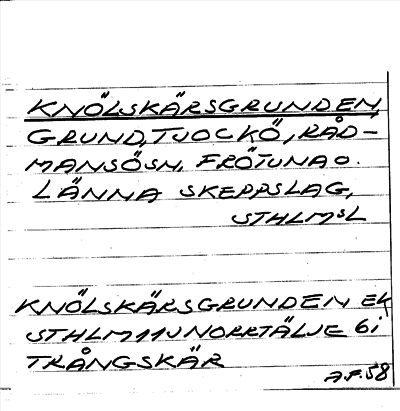 KNÖLSKÄRSGRUNDEN,
GRUND, TJOCKÖ, RÅD-
MANSÖSN, FRÖTUNA O.
LÄNNA SKEPPSLAG,
STHLMSL
KNÖLSKÄRSGRUNDEN EK
STHLM 11J NORRTÄLJE 6i
TRÅNGSKÄR
A.F. 58